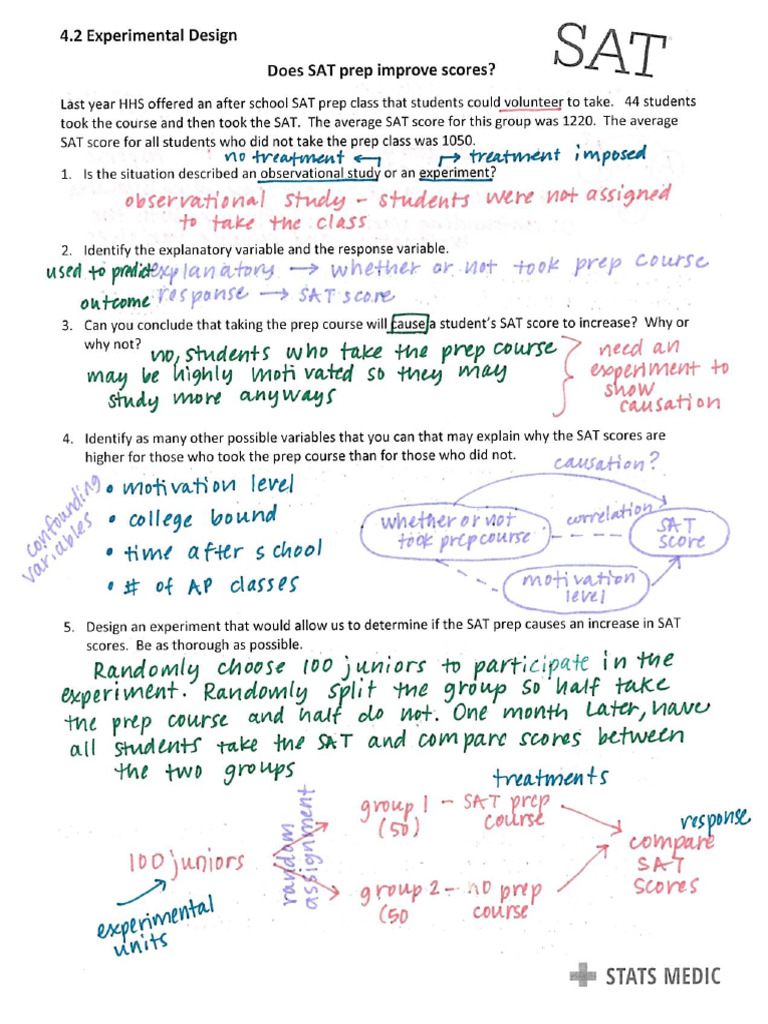 4.2 Experimental Design
SAT
Does SAT prep improve scores?
Last year HHS offered an after school SAT prep class that students could volunteer to take. 44 students
took the course and then took the SAT. The average SAT score for this group was 1220. The average
SAT score for all students who did not take the prep class was 1050.
no treatment ↩ ↱ treatment imposed
1. Is the situation described an observational study or an experiment?
observational study - students were not assigned
to take the class
2. Identify the explanatory variable and the response variable.
used to predict explanatory → whether or not took prep course
outcome response → SAT score
3. Can you conclude that taking the prep course will cause a student's SAT score to increase? Why or
why not?
no, students who take the prep course
may be highly motivated so they may
study more anyways
need an
experiment to
show
causation
4. Identify as many other possible variables that you can that may explain why the SAT scores are
higher for those who took the prep course than for those who did not.
confounding
variables
• motivation level
• college bound
• time after school
• # of AP classes
causation?
whether or not
took prep course
correlation
SAT
score
motivation
level
5. Design an experiment that would allow us to determine if the SAT prep causes an increase in SAT
scores. Be as thorough as possible.
Randomly choose 100 juniors to participate in the
experiment. Randomly split the group so half take
the prep course and half do not. One month later, have
all students take the SAT and compare scores between
the two groups
treatments
100 juniors
experimental
units
random
assignment
group 1 - SAT prep
(50) course
group 2 - no prep
(50 course
response
compare
SAT
scores
STATS MEDIC